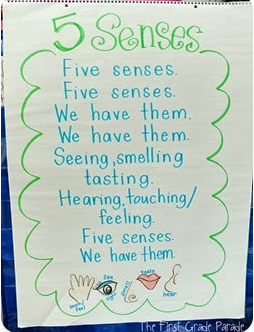 5 Senses
Five senses.
Five senses.
We have them.
We have them.
Seeing, smelling
tasting.
Hearing, touching/
feeling.
Five senses.
We have them.
touch/
feel
See
smell
taste
hear
The First Grade Parade